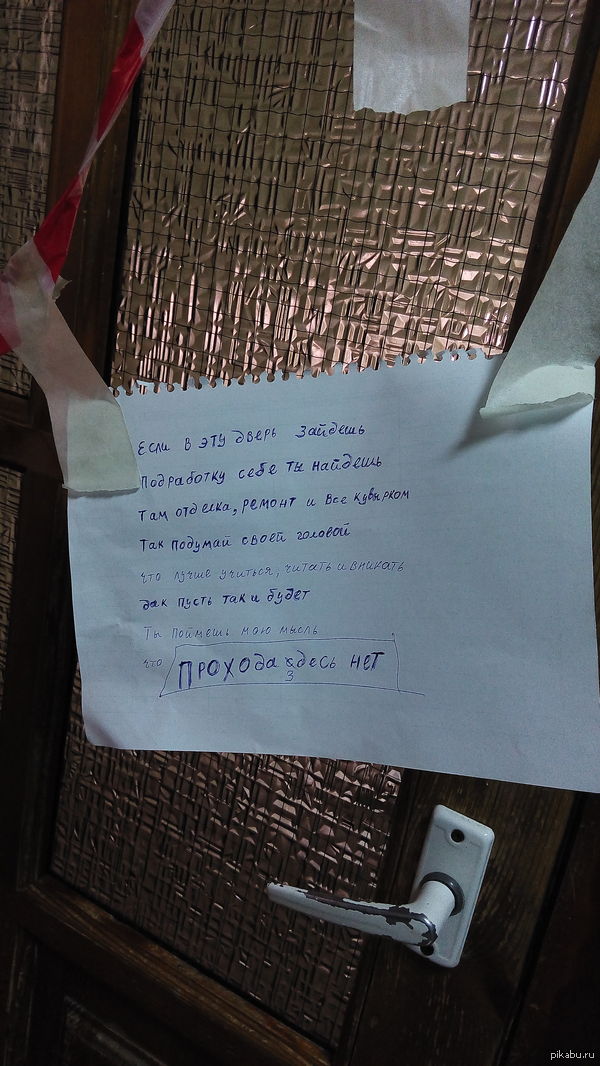 Если в эту дверь зайдешь
Подработку себе ты найдешь
Там отделка, ремонт и все кувырком
Так подумай своей головой
что лучше учиться, читать и вникать
дак пусть так и будет
Ты поймешь мою мысль
что ПРОХОда сдесь НЕТ
З
pikabu.ru